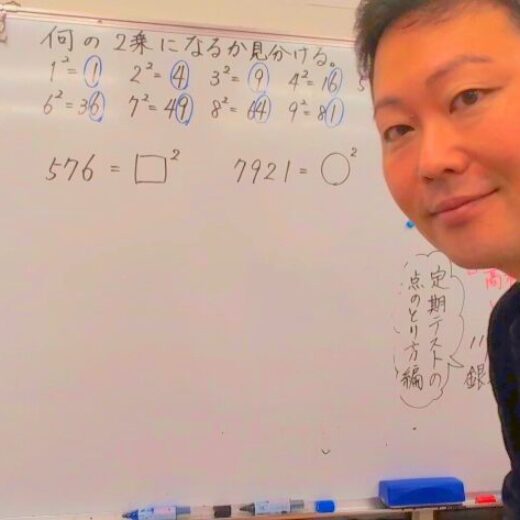 何の2乗になるか見分ける。
1²=1 2²=4 3²=9 4²=16 5
6²=36 7²=49 8²=64 9²=81
576=□² 7921=○²
定期テストの
点のとり方編
高
銀